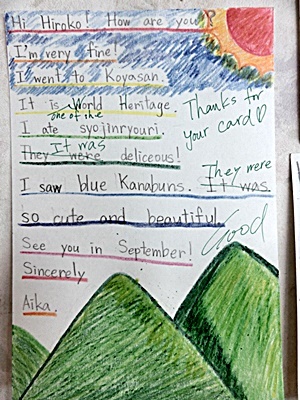 Hi Hiroko! How are you?
I'm very fine!
I went to Koyasan.
It is World Heritage.
one of the
Thanks for
your card
I ate syojinryouri.
It was
They were deliceous!
They were
I saw blue Kanabuns. It was
so cute and beautiful
Good
See you in September!
Sincerely
Aika.